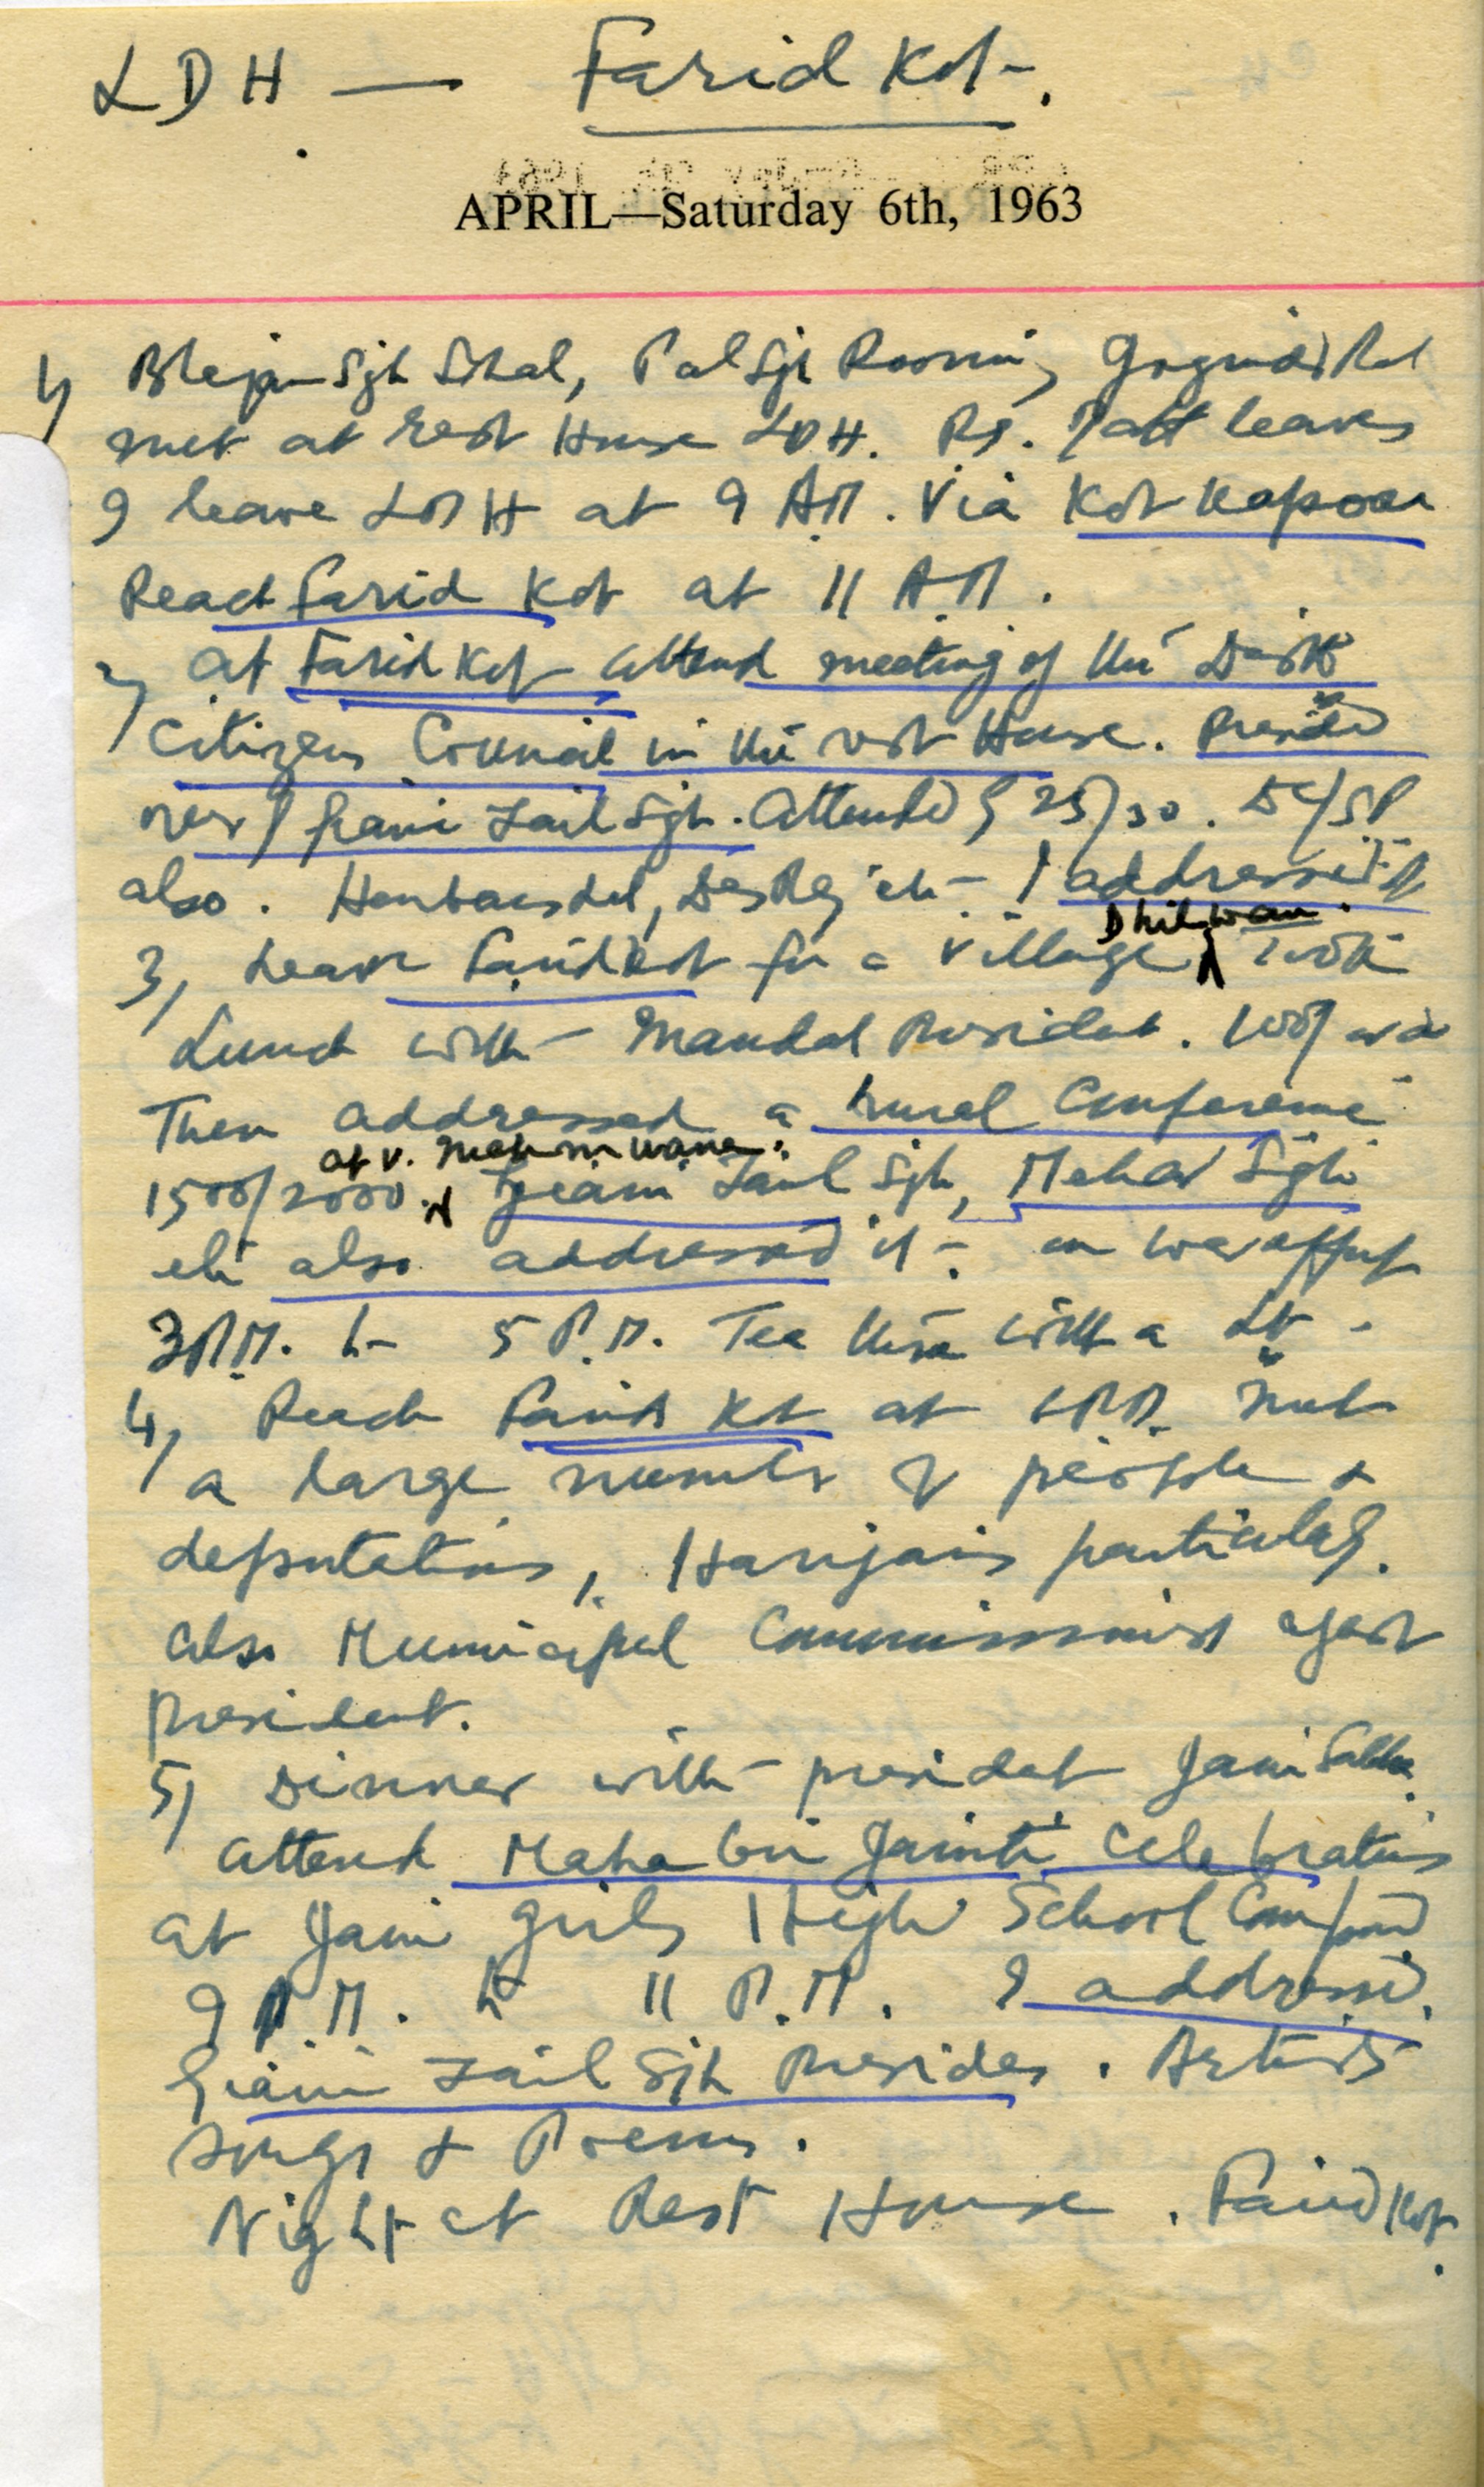 LDH — Farid Kot.
APRIL—Saturday 6th, 1963
1) Sgh, Pal Sgh
met at rest House LDH. leaves
I leave LDH at 9 AM. Via Kot Kapoora
Reach Farid Kot at 11 AM.
2) at Farid Kot attend meeting of the Distt
Citizens Council in the rest House. Presided
over by Giani Zail Sgh. Attended by 25/30. DC/SP
also. Harbans Lal, Des Raj etc - I addressed it
3, Leave Faridkot for a Village Dhilwan. took
Lunch with Mandal President.
Then addressed a rural Conference
at v.
1500/2000. Giani Zail Sgh, Mehar Sgh
etc also addressed it - on war effort
3 P.M. to 5 P.M. Tea there with a Lt.
4, Reach Farid Kot at 6 P.M. met
a large number of people &
deputations, Harijans particularly.
also Municipal Commissioners agast
President.
5) Dinner with president Jain Sabha.
attend Mahabir Jainti Celebrations
at Jain girls High School Compound
9 P.M. to 11 P.M. I addressed.
Giani Zail Sgh Presides. Artists
songs & Poems.
Night at Rest House. Farid Kot.